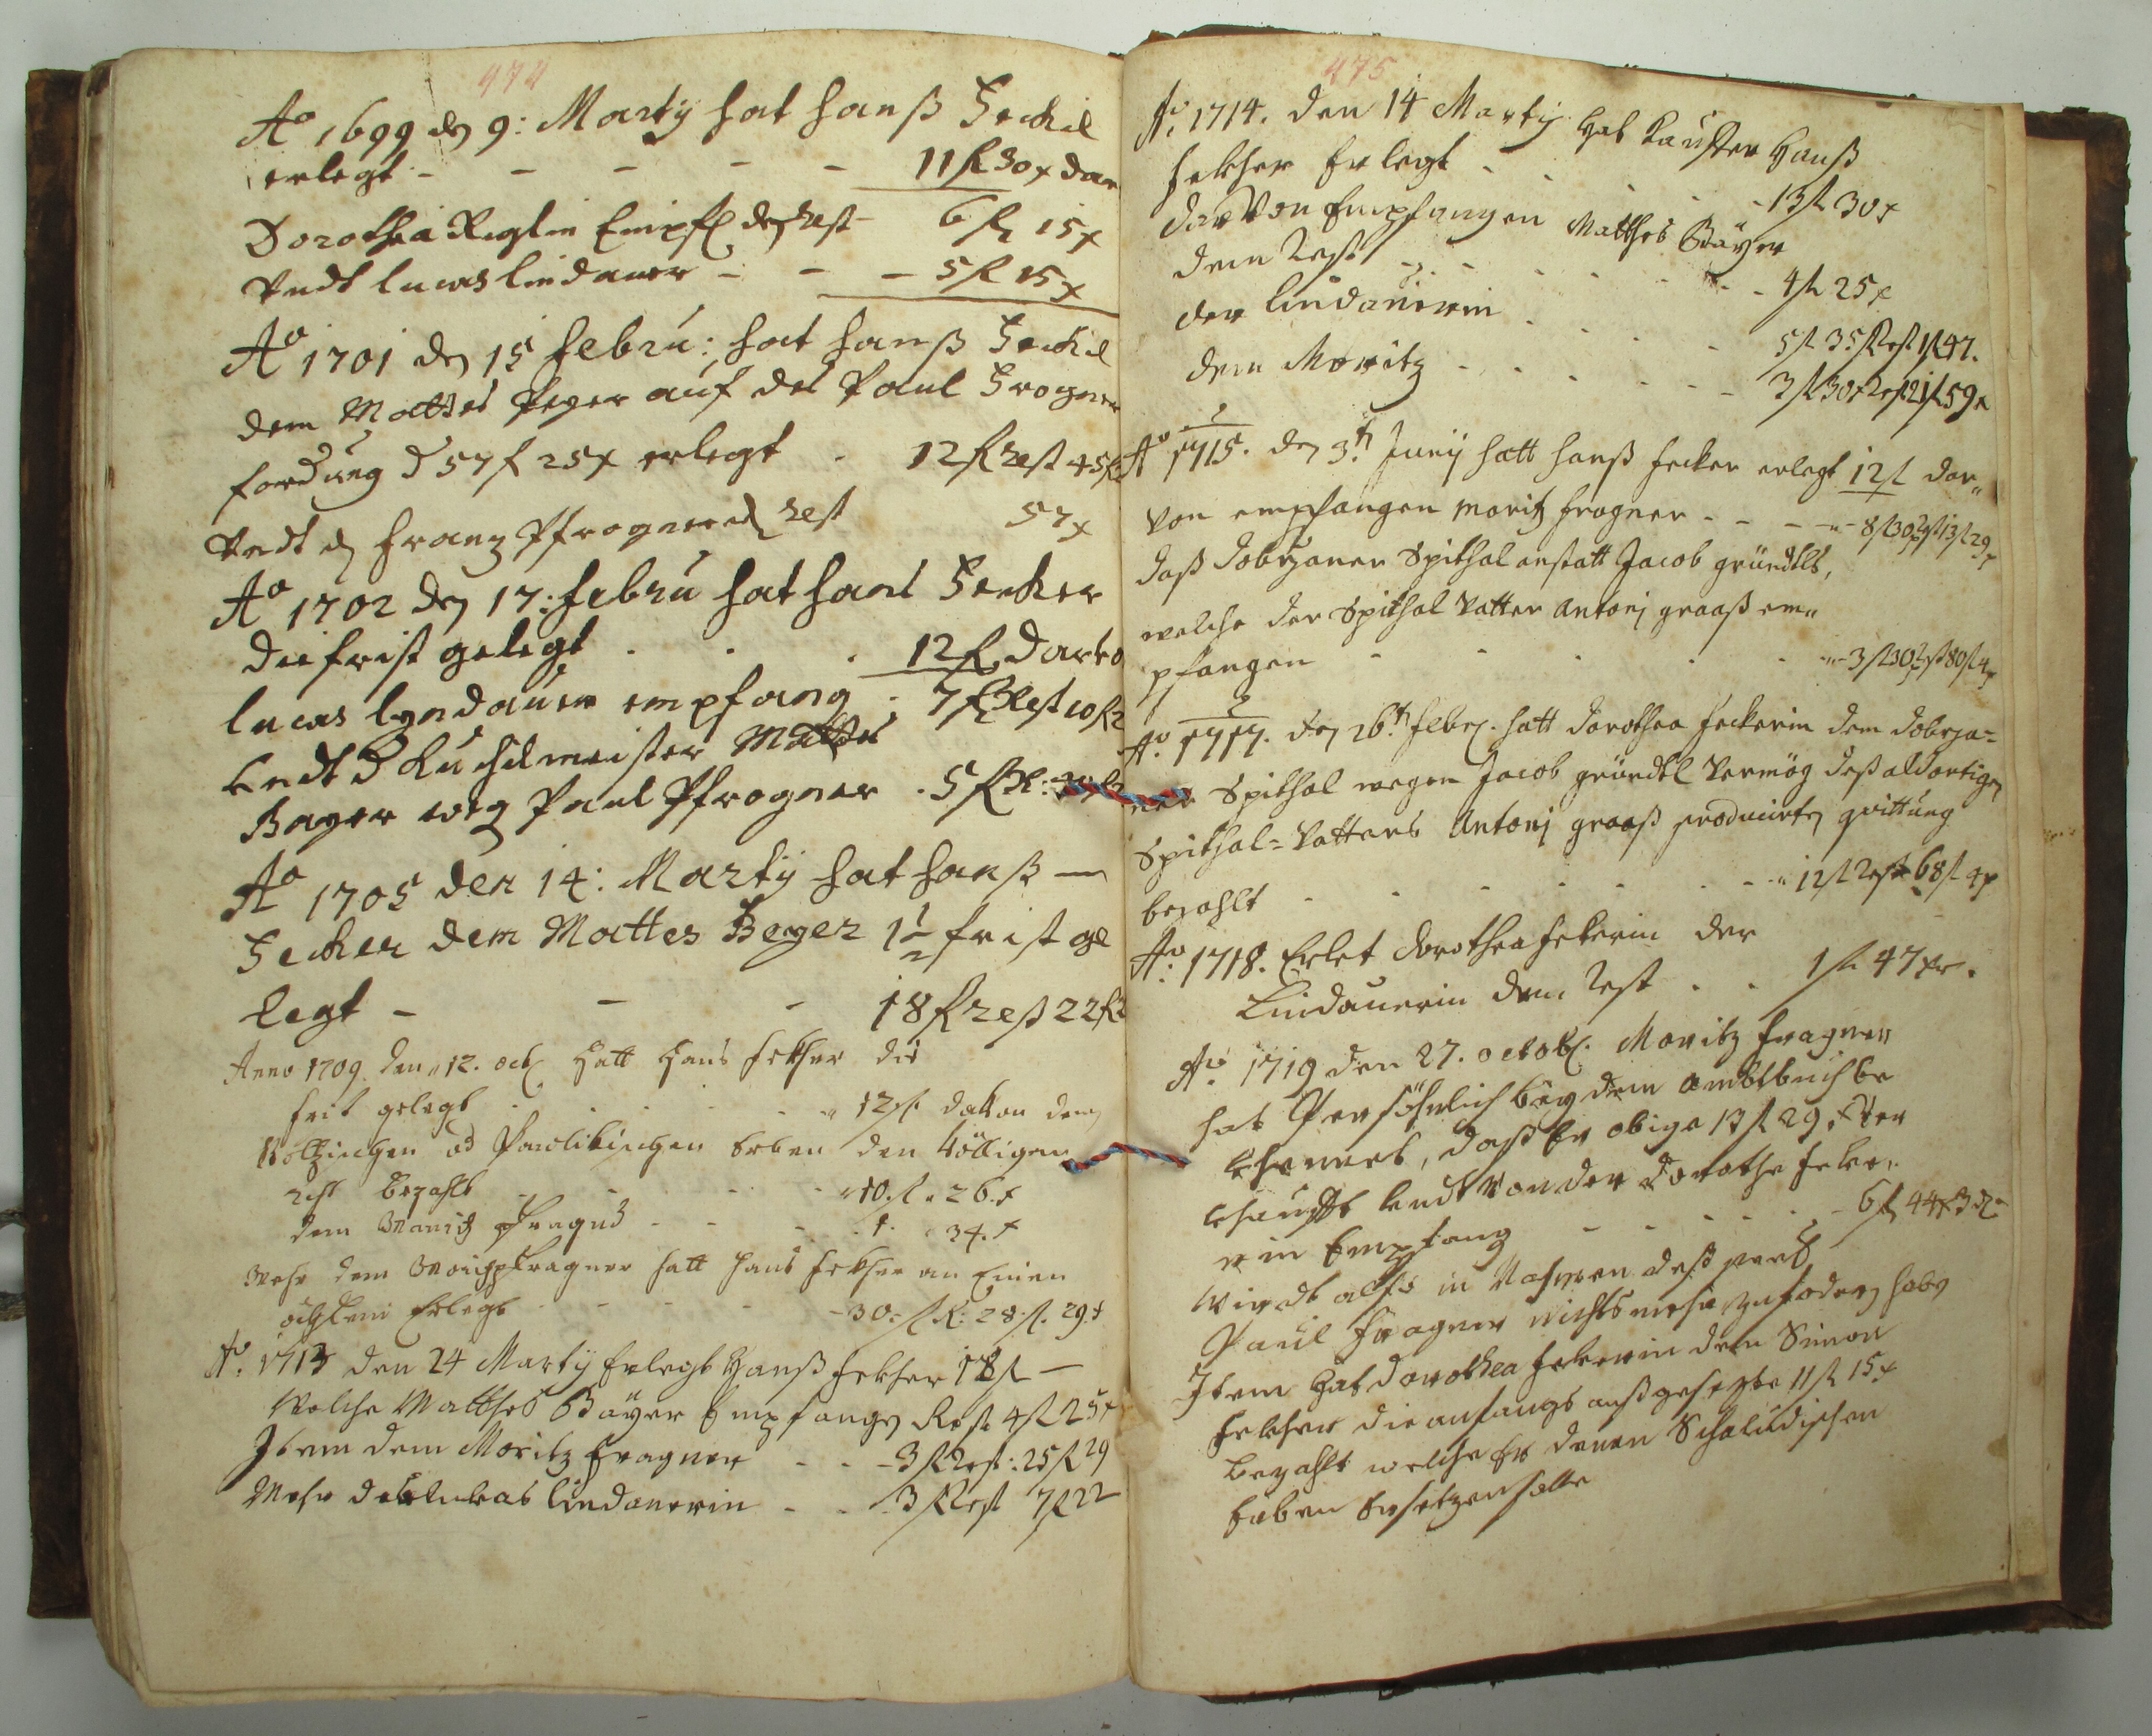 474
Ao 1699 den 9: Marty hat Hanß Feckel
erlegt - - - - 11 fl 30 x dar
Dorothea Reglin Empf den Rest - 6 fl 15 x
Undt lucas lindauer - - - 5 fl 15 x
Ao 1701 den 15 Febru: hat Hanß Feckel
dem Mattes Peyer auf des Paul Frogner
fordung d 57 f 25 x erlegt - 12 fl Rest 45 fl
Undt den Frantz Pfrogner Rest 57 x
Ao 1702 den 17: Febru hat Hans Fecker
die frist gelegt . . . 12 fl darvo
lucas lyndauer empfang . 7 fl Rest 10 fl
undt Kuchelmeister Mattes
Bayer weg Paul Pfrogner . 5 fl R:
Ao 1705 den 14: Marty hat Hanß —
Fecker dem Mattes Beyer 1 1/2 frist ge
legt - - - 18 fl Rest 22 fl
Anno 1709. den 12. oct Hatt Hans Fekher die
frist gelegt . . . . 12 fl. davon dem
Erben den völligen
rest bezahlt - - - 10. fl. 26. x
dem Moritz - - 1. 34. x
Mehr dem Pfragner hatt Hans Fekher an Einen
Erlegt - - - - 30. fl. R: 28. fl. 29. x
Ao. 1713 den 24 Marty Erlegt Hanß Fekher 18 fl —
Welche Matthes Bäyer Empfangen Rest 4 fl 25 x
Item dem Moritz Fragner - - - 3 fl Rest: 25 fl 29
Mehr des lukas lindauerin - - . 3 fl Rest 7 fl 22
475
Ao. 1714. den 14 Marty hat Kauffer Hanß
Fekher Erlegt - - - - - 13 fl 30 x
darvon Empfangen Matthes Bäyer
den Rest - - - - - - 4 fl 25 x
der lindauerin - - - 5 fl 35 Rest 1 fl 47.
dem Moritz - - - - - - 3 fl 30 x Rest 21 fl 59 x
Ao 1715. den 3t. Junij hatt Hanß Fecker erlegt 12 fl dar„
von empfangen moritz fragner - - - - 8 fl 30 Rest 13 fl 29 x
daß dobrzaner Spithal anstatt Jacob gründtls,
welche der Spithal Vatter Antonj graaß em„
pfangen - - - - - 3 fl 30 Rest 80 fl 4 x
Ao. 1717. den 26t. febr. hatt dorothea Feckerin dem dobrza=
ner Spithal wegen Jacob gründtl Vermög deß aldortigen
Spithal=Vatters Antonj graaß producirten quittung
bezahlt - - - - - - 12 fl Rest 68 fl 4 x
Ao. 1718. Erlet dorothea Fekerin der
Lindauerin den Rest . . 1 fl 47 xr.
Ao. 1719 den 27. octob. Moritz fragner
hat Persöhnlich bey dem ambtbuch be
khennet, daß Er obige 13 fl 29 x ver
khaufft undt von der Dorothe Feker„
in Empfang - - - - - 6 fl 44 x 3 d
Wirdt alß in Nahmen deß
Paul Fragner nichts mehr zufodern haben
Item hat dorothea Fekerin dem Simon
Fekher die anfangs außgesezte 11 fl 15 x
bezahlt welche Er denen Schaludischen
Erben Ersetzen solle